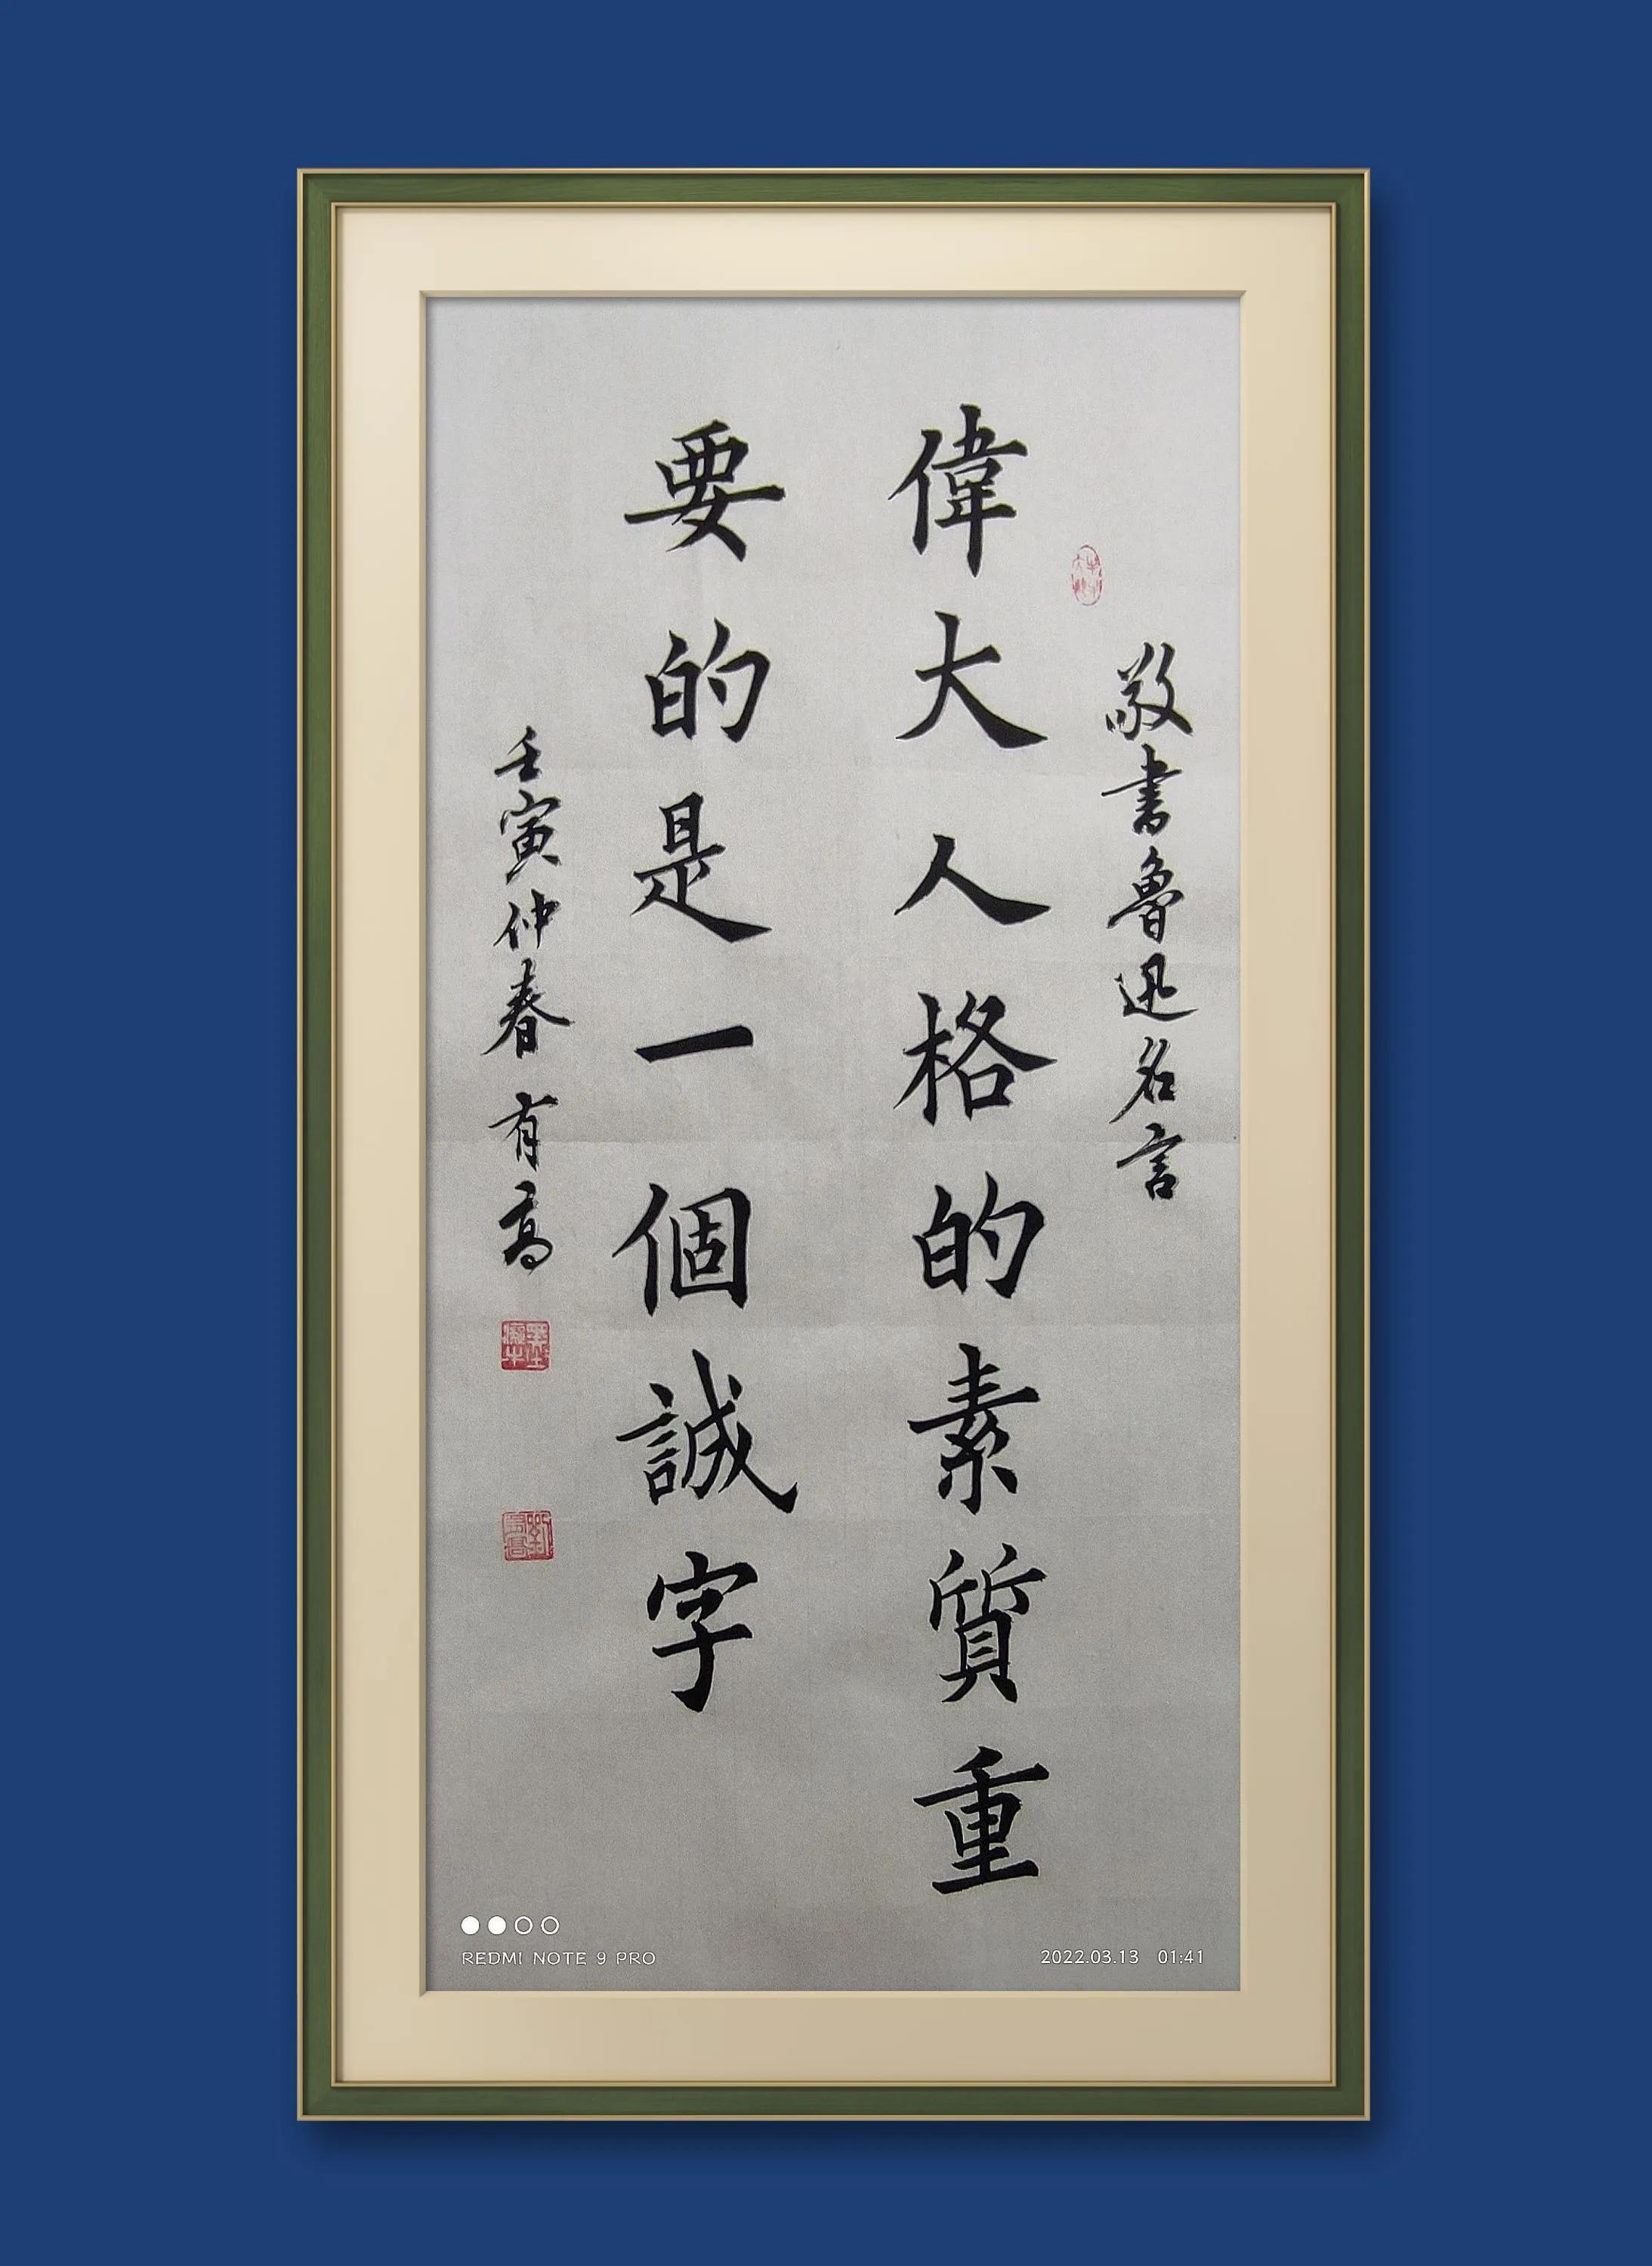 敬書魯迅名言
偉大人格的素質重
要的是一個誠字
壬寅仲春 有高
REDMI NOTE 9 PRO
2022.03.13 01:41